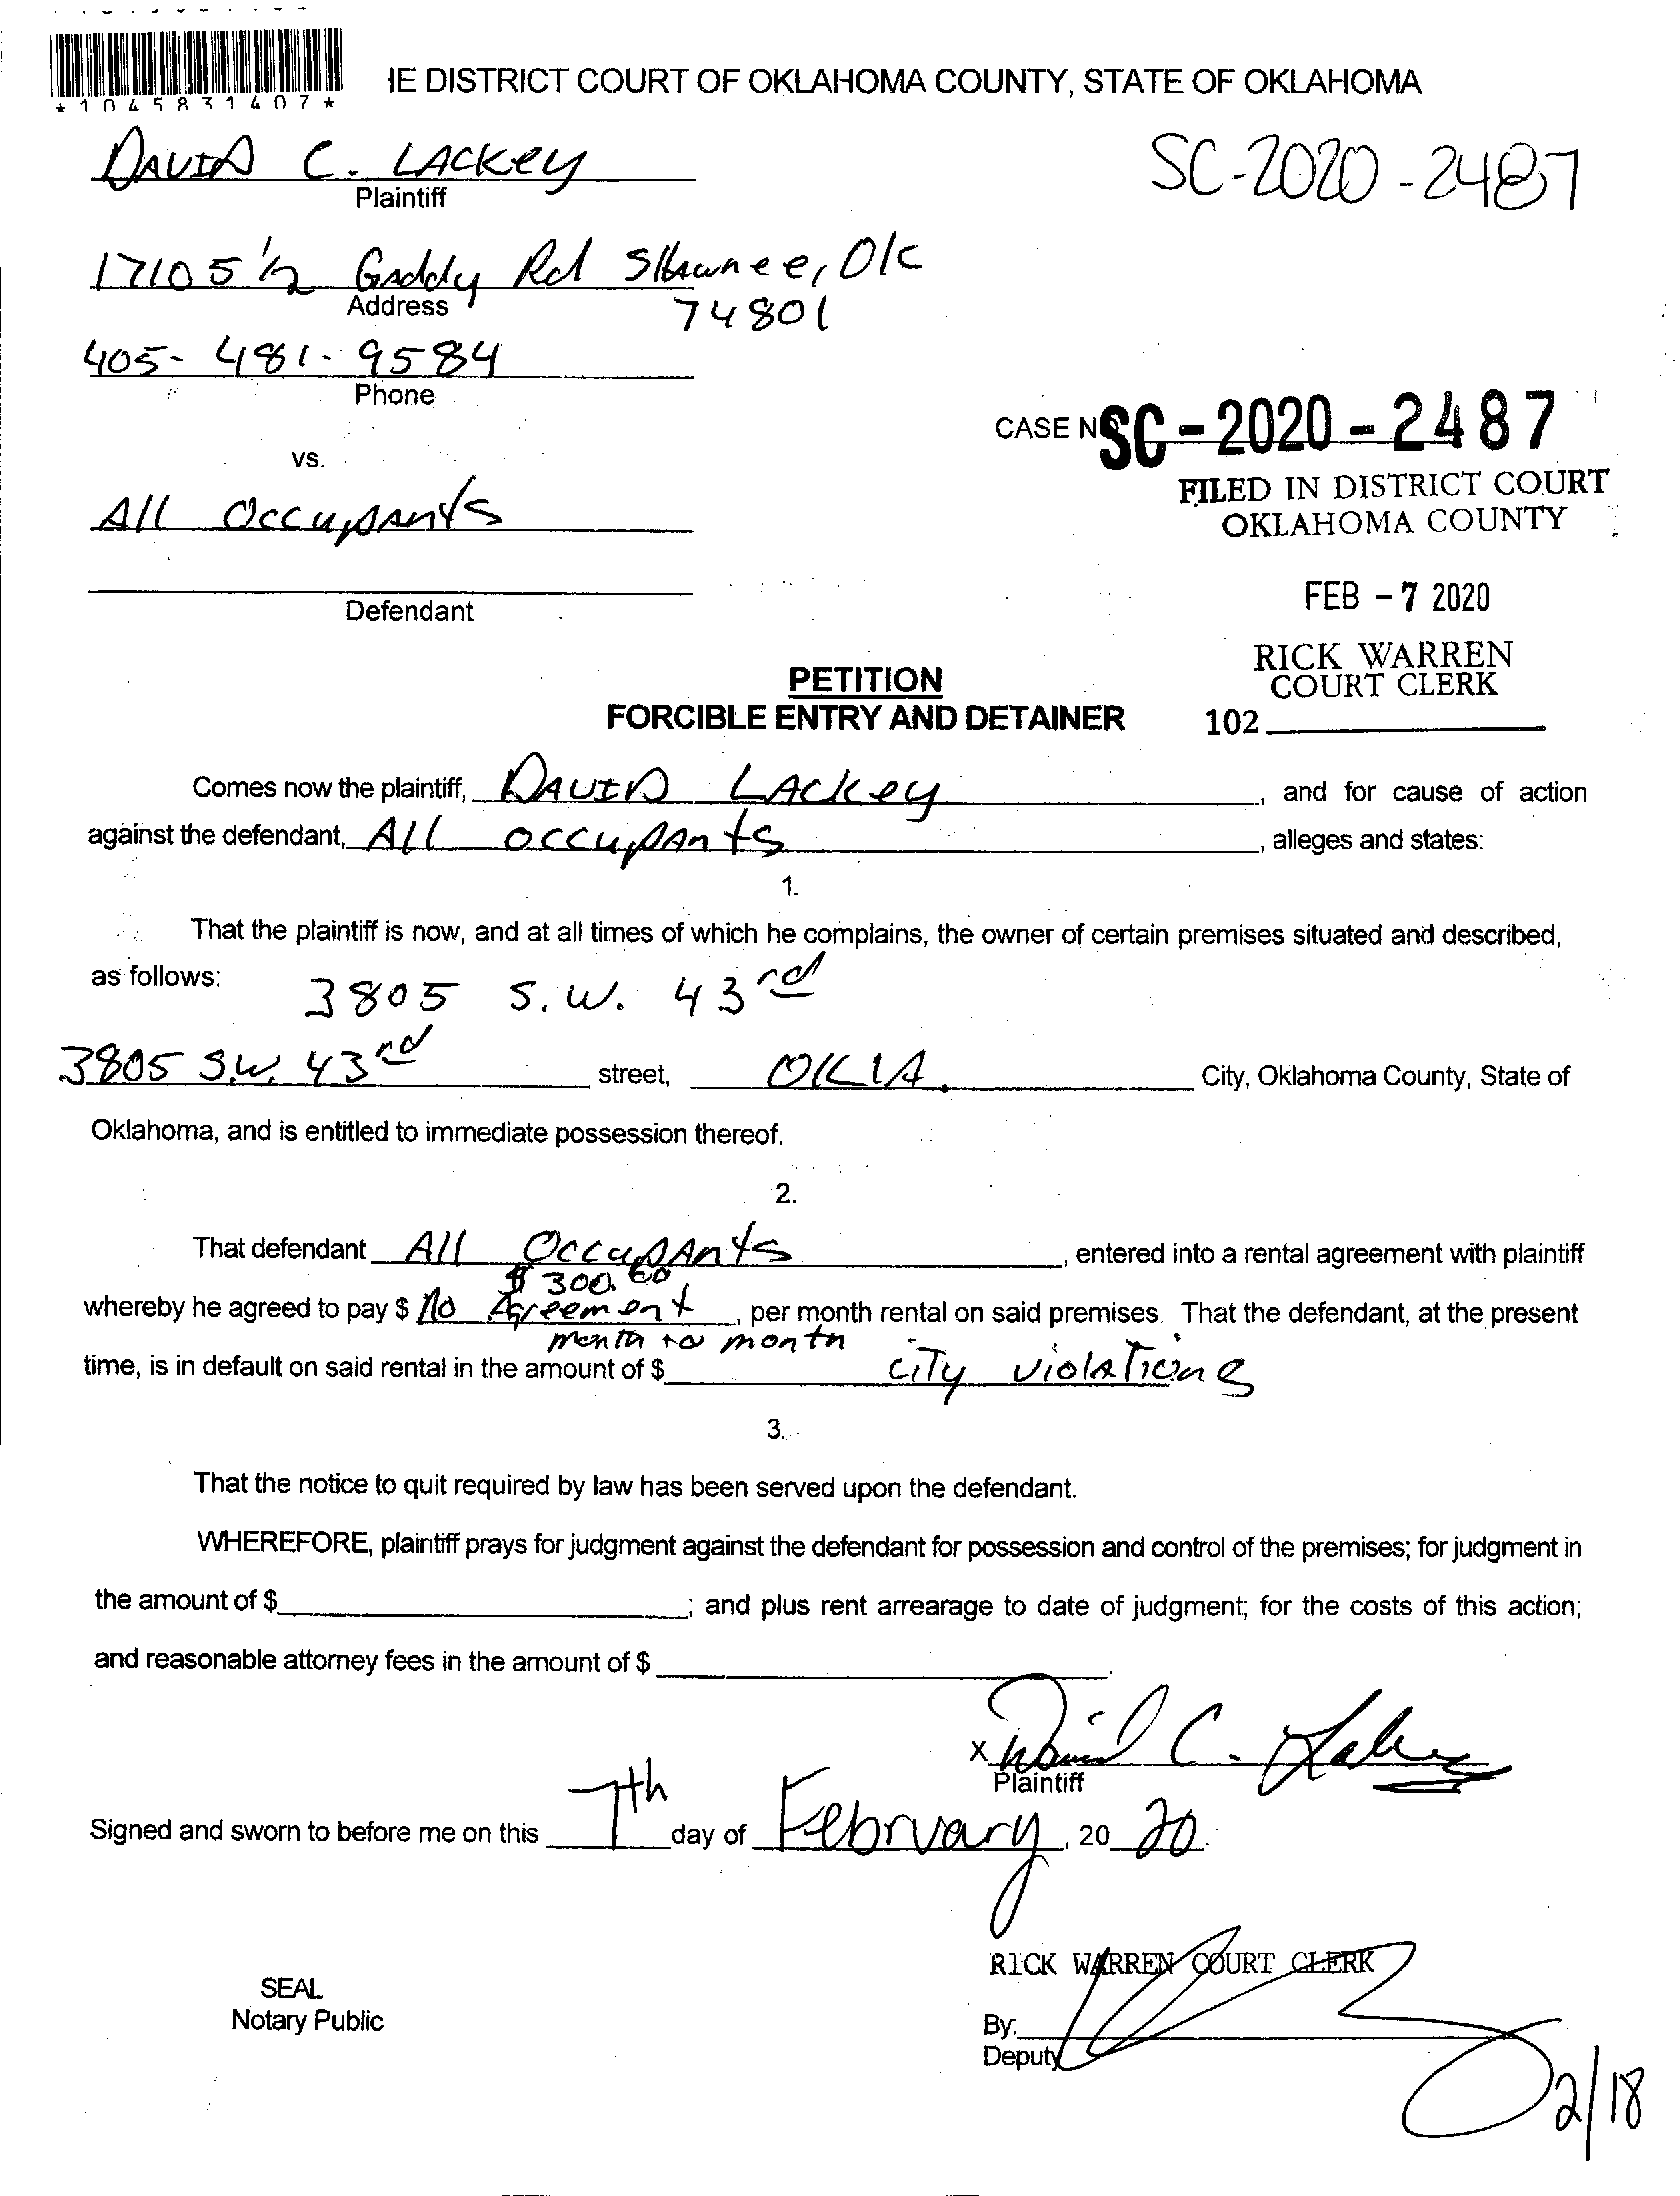 IE DISTRICT COURT OF OKLAHOMA COUNTY, STATE OF OKLAHOMA
*1045831407*
DAVID C. LACKey
Plaintiff
SC-2020-2487
17105 1/2 Gaddy Rd Shawnee, OK
Address
74801
405-481-9584
Phone
CASE NO. SC-2020-2487
vs.
FILED IN DISTRICT COURT
OKLAHOMA COUNTY
All Occupants
FEB -7 2020
Defendant
RICK WARREN
COURT CLERK
102
PETITION
FORCIBLE ENTRY AND DETAINER
Comes now the plaintiff, DAVID LACKey, and for cause of action
against the defendant, All occupants, alleges and states:
1.
That the plaintiff is now, and at all times of which he complains, the owner of certain premises situated and described,
as follows: 3805 S.W. 43rd
3805 S.W. 43rd street, OKLA. City, Oklahoma County, State of
Oklahoma, and is entitled to immediate possession thereof.
2.
That defendant All Occupants, entered into a rental agreement with plaintiff
$300.00
whereby he agreed to pay $ No Agreement, per month rental on said premises. That the defendant, at the present
month to month
time, is in default on said rental in the amount of $ City violations
3.
That the notice to quit required by law has been served upon the defendant.
WHEREFORE, plaintiff prays for judgment against the defendant for possession and control of the premises; for judgment in
the amount of $ ; and plus rent arrearage to date of judgment; for the costs of this action;
and reasonable attorney fees in the amount of $ .
x David C. Lackey
Plaintiff
Signed and sworn to before me on this 7th day of February, 20 20.
RICK WARREN COURT CLERK
SEAL
Notary Public
By:
Deputy
2/18